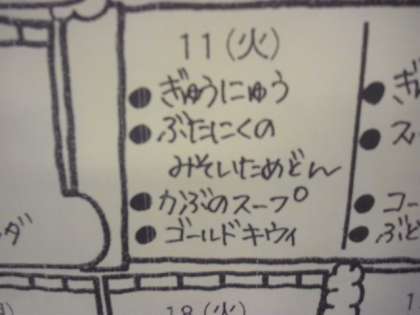 11(火)
●ぎゅうにゅう
●ぶたにくの
みそいためどん
●かぶのスープ
●ゴールドキウイ
ダ
●ぎ
●ス
●コー
●ぶど
18(火)
1